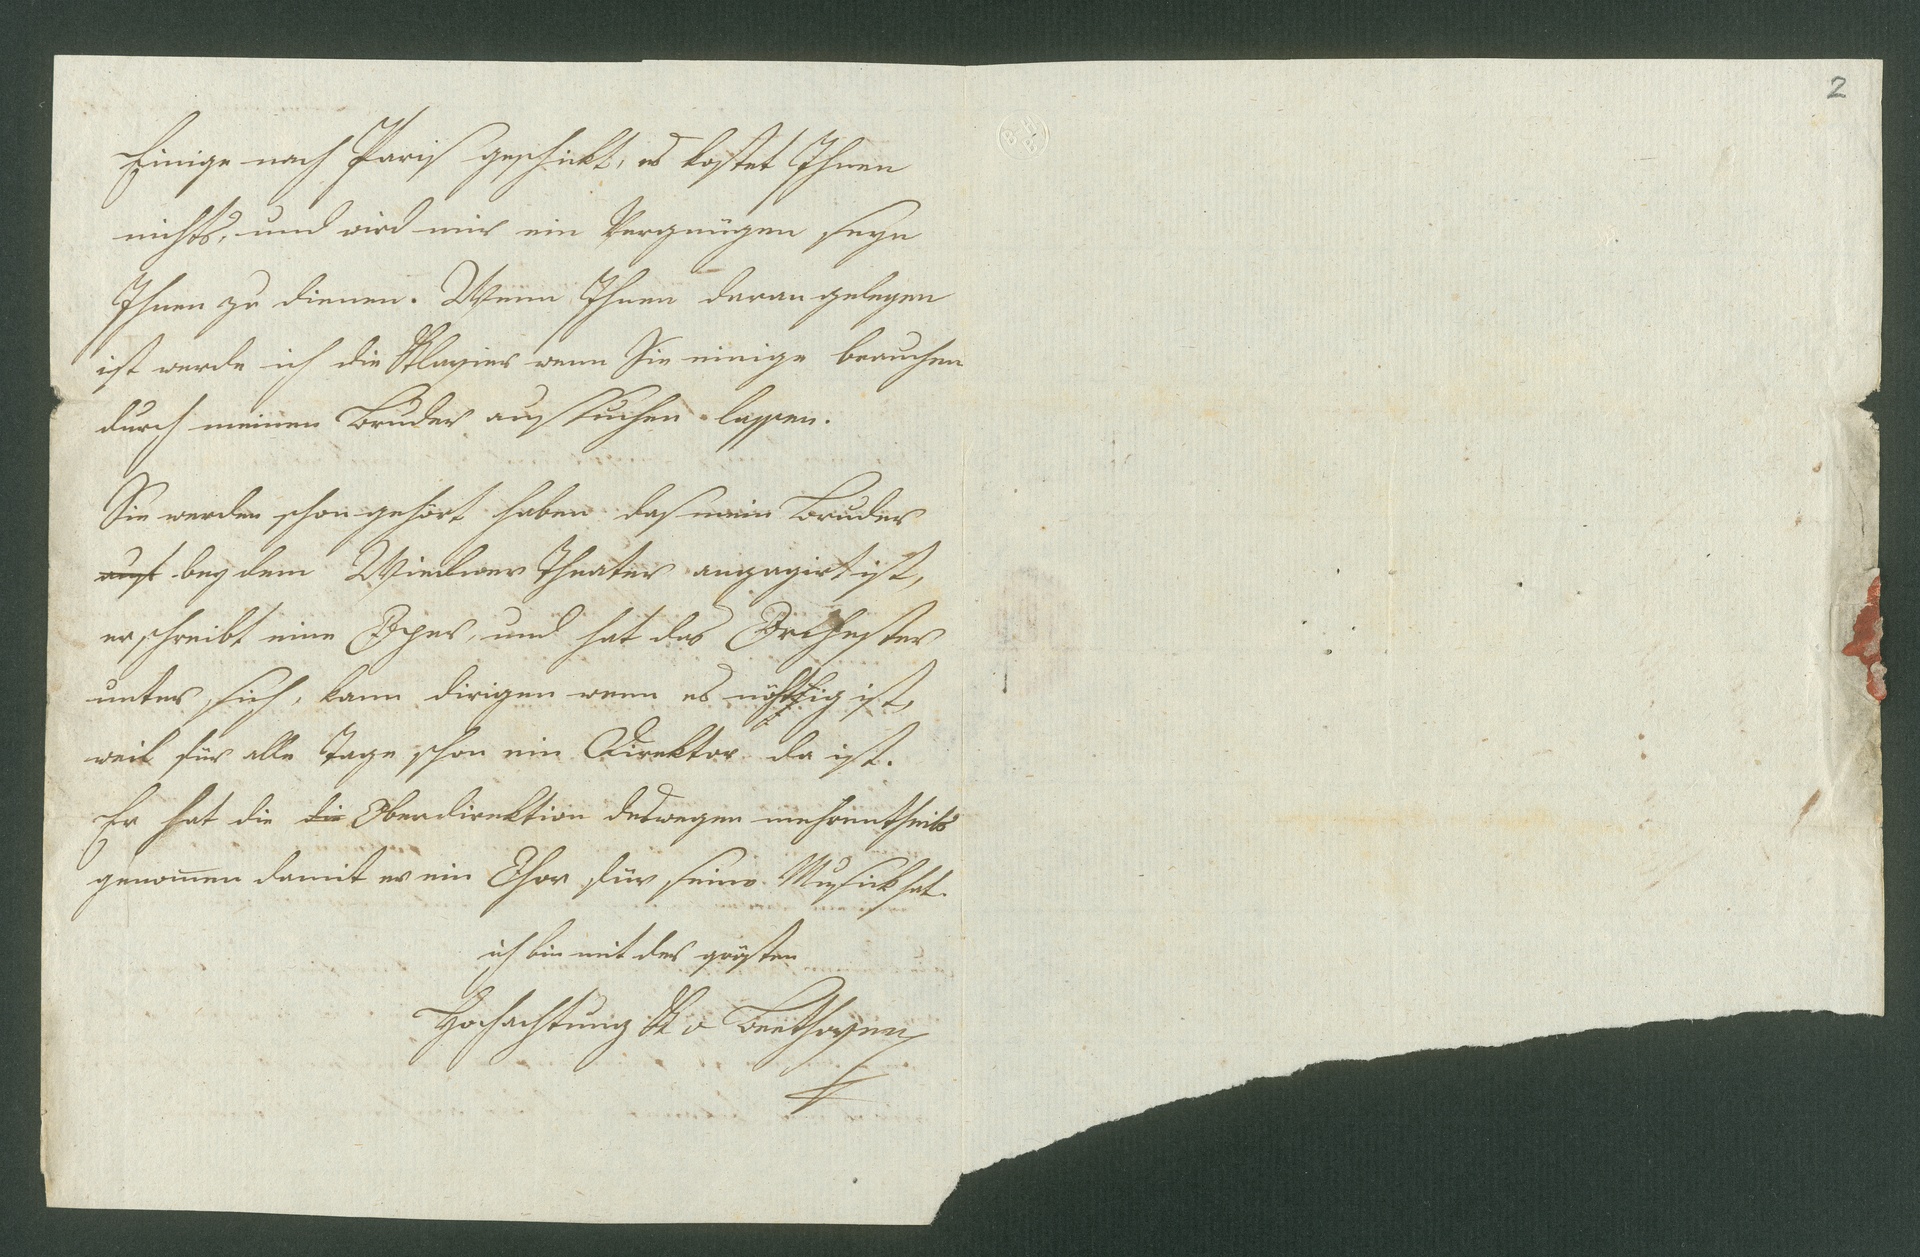 2
Einige nach Paris geschickt, es kostet Ihnen
nichts, und wird mir ein Vergnügen seyn
Ihnen zu dienen. Wenn Ihnen daran gelegen
ist werde ich die Klavier wenn Sie einige brauchen
durch meinen Bruder aussuchen lassen.
Sie werden schon gehört haben das mein Bruder
bey dem Wiedner Theater angagirt ist,
er schreibt eine Oper, und hat das Orchester
unter sich, kann dirigen wenn es nöthig ist,
weil für alle Tage schon ein Direktor da ist.
Er hat die die Oberdirektion deswegen mehrentheils
genom̅en damit er ein Chor für seine Musick hat.
ich bin mit der grösten
Hochachtung K v Beethoven